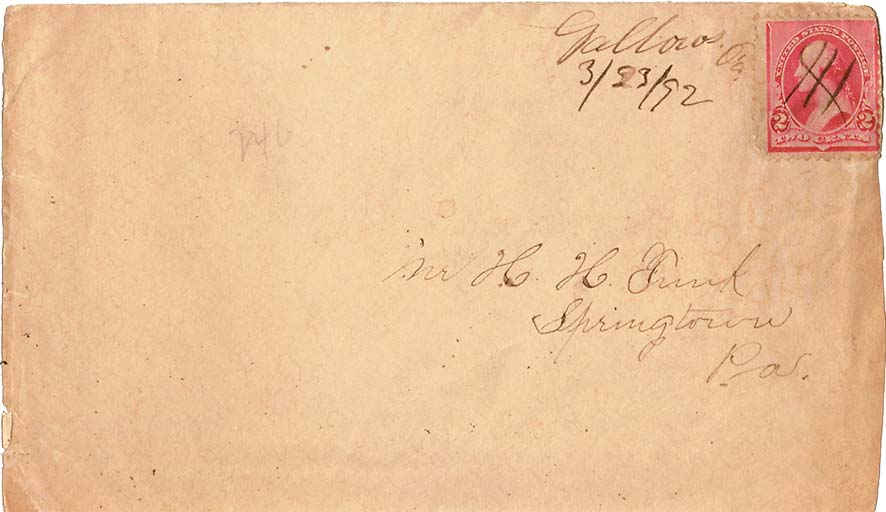 Gallows. Pa.
3/23/92
UNITED STATES POSTAGE
2 2
TWO CENTS
Mr H. H. Funk
Springtown
Pa.